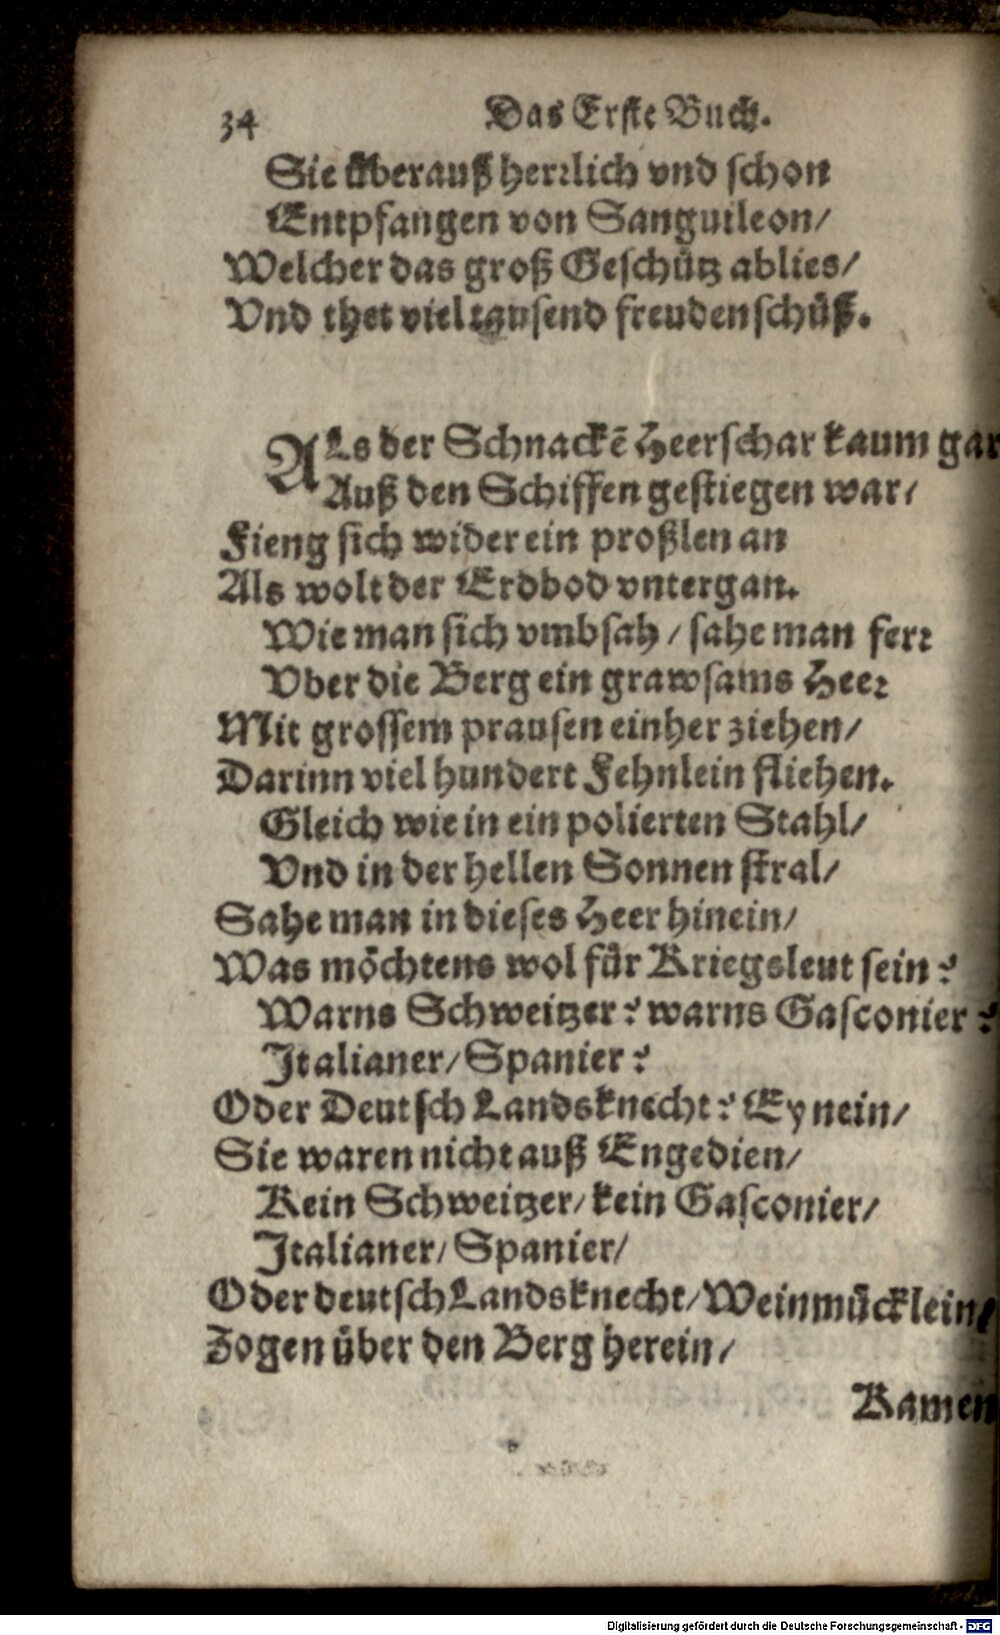 34 Das Erste Buch.
Sie überauß herrlich vnd schon
Entpfangen von Sanguileon/
Welcher das groß Geschütz ablies/
Vnd thet viel tausend freudenschüß.
ALs der Schnackē Heerschar kaum gar
Auß den Schiffen gestiegen war/
Fieng sich wider ein proßlen an
Als wolt der Erdbod vntergan.
Wie man sich vmbsah / sahe man ferr
Vber die Berg ein grawsams Heer
Mit grossem prausen einher ziehen/
Darinn viel hundert Fehnlein fliehen.
Gleich wie in ein polierten Stahl/
Vnd in der hellen Sonnen stral/
Sahe man in dieses Heer hinein/
Was möchtens wol für Kriegsleut sein?
Warns Schweitzer? warns Gasconier?
Italianer/ Spanier?
Oder Deutsch Landsknecht? Ey nein/
Sie waren nicht auß Engedien/
Kein Schweitzer/ kein Gasconier/
Italianer/ Spanier/
Oder deutsch Landsknecht/ Weinmücklein/
Zogen über den Berg herein/
Kamen
Digitalisierung gefördert durch die Deutsche Forschungsgemeinschaft - DFG